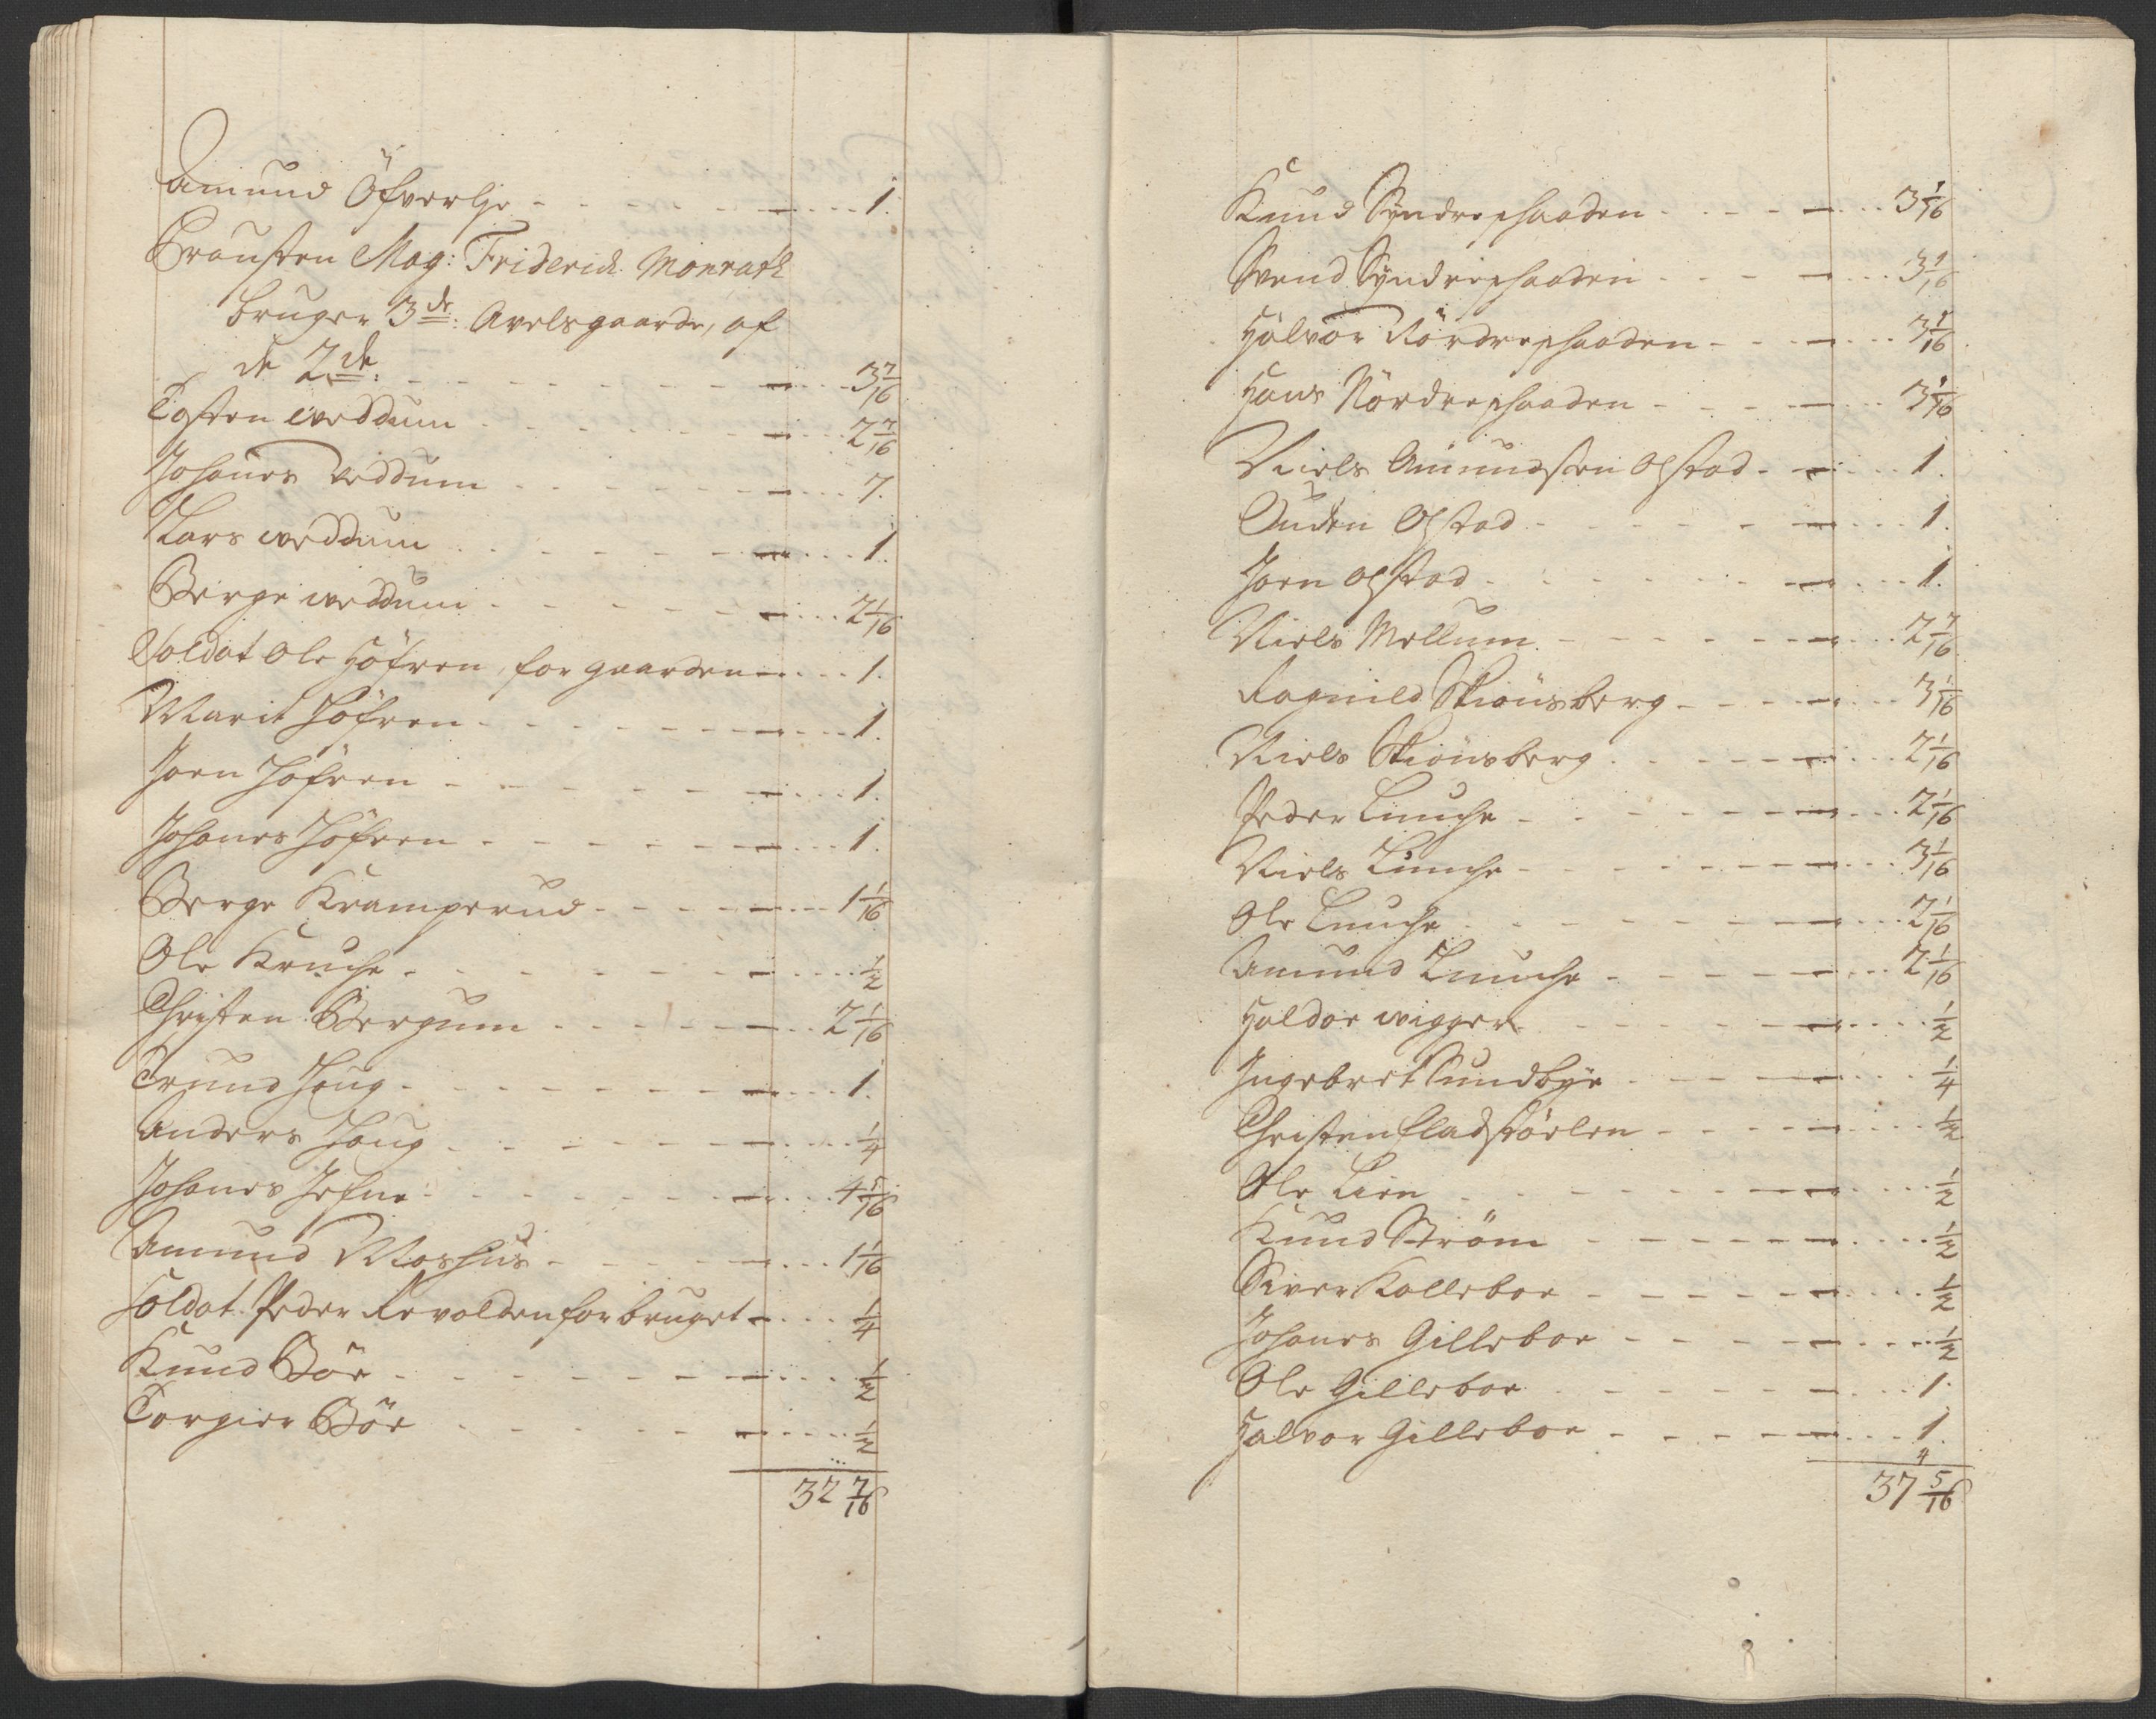 Amund Öfverlje - - - 1.
Prousten Mag: Friderich Monrath
bruger 3de: Avelsgaarde, af
de 2de: - - - 3 7/16
Tosten weddum - - - 2 7/16
Johanes Veddum - - - 7.
Lars weddum - - - 1.
Berge weddum - - - 2 1/16
Soldat Ole Höfren, for gaarden - - - 1.
Marit Höfren - - - 1.
Joen Höfren - - - 1.
Johanes Höfren - - - 1.
Berge Kramperud - - - 1 1/16
Ole Kruche - - - 1/2
Christen Bergum - - - 2 1/16
Trund Houg - - - 1.
Anders Houg - - - 1/4
Johanes Jefne - - - 4 1/16
Amund Moshus - - - 1 1/16
Soldat Peder Revolden for bruget - - - 1/4
Knud Böe - - - 1/2
Torgier Böe - - - 1/2
32 7/16
Knud Syndre - - - 3 1/16
Svend Syndre - - - 3 1/16
Halvor Nördre - - - 3 1/16
Hans Nördre - - - 3 1/16
Niels Amundsen Opstad - - - 1.
Auden Opstad - - - 1.
Joen Opstad - - - 1.
Niels Mellum - - - 2 7/16
Ragnild Skiönsberg - - - 3 1/16
Niels Skiönsberg - - - 2 1/16
Peder Lunche - - - 2 1/16
Niels Lunche - - - 3 1/16
Ole Lunche - - - 2 1/16
Amund Lunche - - - 2 1/16
Haldor wigger - - - 1/2
Ingebret Sundbye - - - 1/4
Christen Fladstöelen - - - 1/2
Ole Lien - - - 1/2
Knud Ström - - - 1/2
Siver Kolleboe - - - 1/2
Johanes Gilleboe - - - 1/2
Ole Gilleboe - - - 1.
Halvor Gilleboe - - - 1.
37 5/16